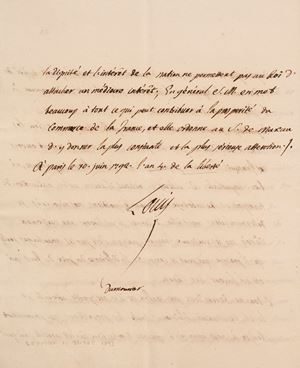 la dignité et l'intérêt de la nation ne permettent pas au Roi d'
attacher un médiocre intérêt; En général S. M. en met
beaucoup à tout ce qui peut contribuer à la prospérité du
Commerce de la france, et elle ordonne au S. de
d'y donner la plus constante et la plus sérieuse attention /.
à paris le 10. juin 1792. l'an 4. de la liberté
Louis
Dumouriez